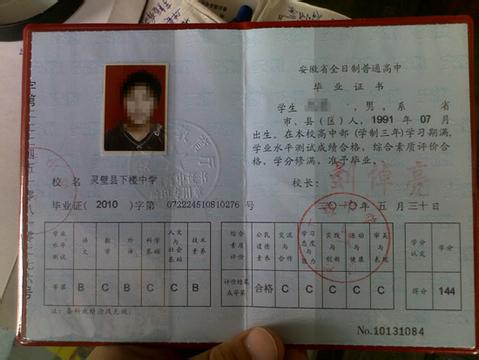 安徽省全日制普通高中
毕业证书
学生 男,系 省
市、县(区)人, 1991 年 07 月
出生。在本校高中部(学制三年)学习期满,
学业水平测试成绩合格,综合素质评价合
格,学分修满,准予毕业。
校长:
二〇一〇年 五 月 三十 日
校 名 灵璧县下楼中学
毕业证(2010)字第 072224510810276 号
学业水平测试 语文 数学 外语 科学基础 人文与社会基础 技术素养
等第 B C B C C B
注:
综合素质评价 公民道德素养 交流与合作 学习态度与能力 实践与创新 运动与健康 审美与表现 学分认定 学分
评价结果或等第 合格 C C C C C 得分 144
No.10131084